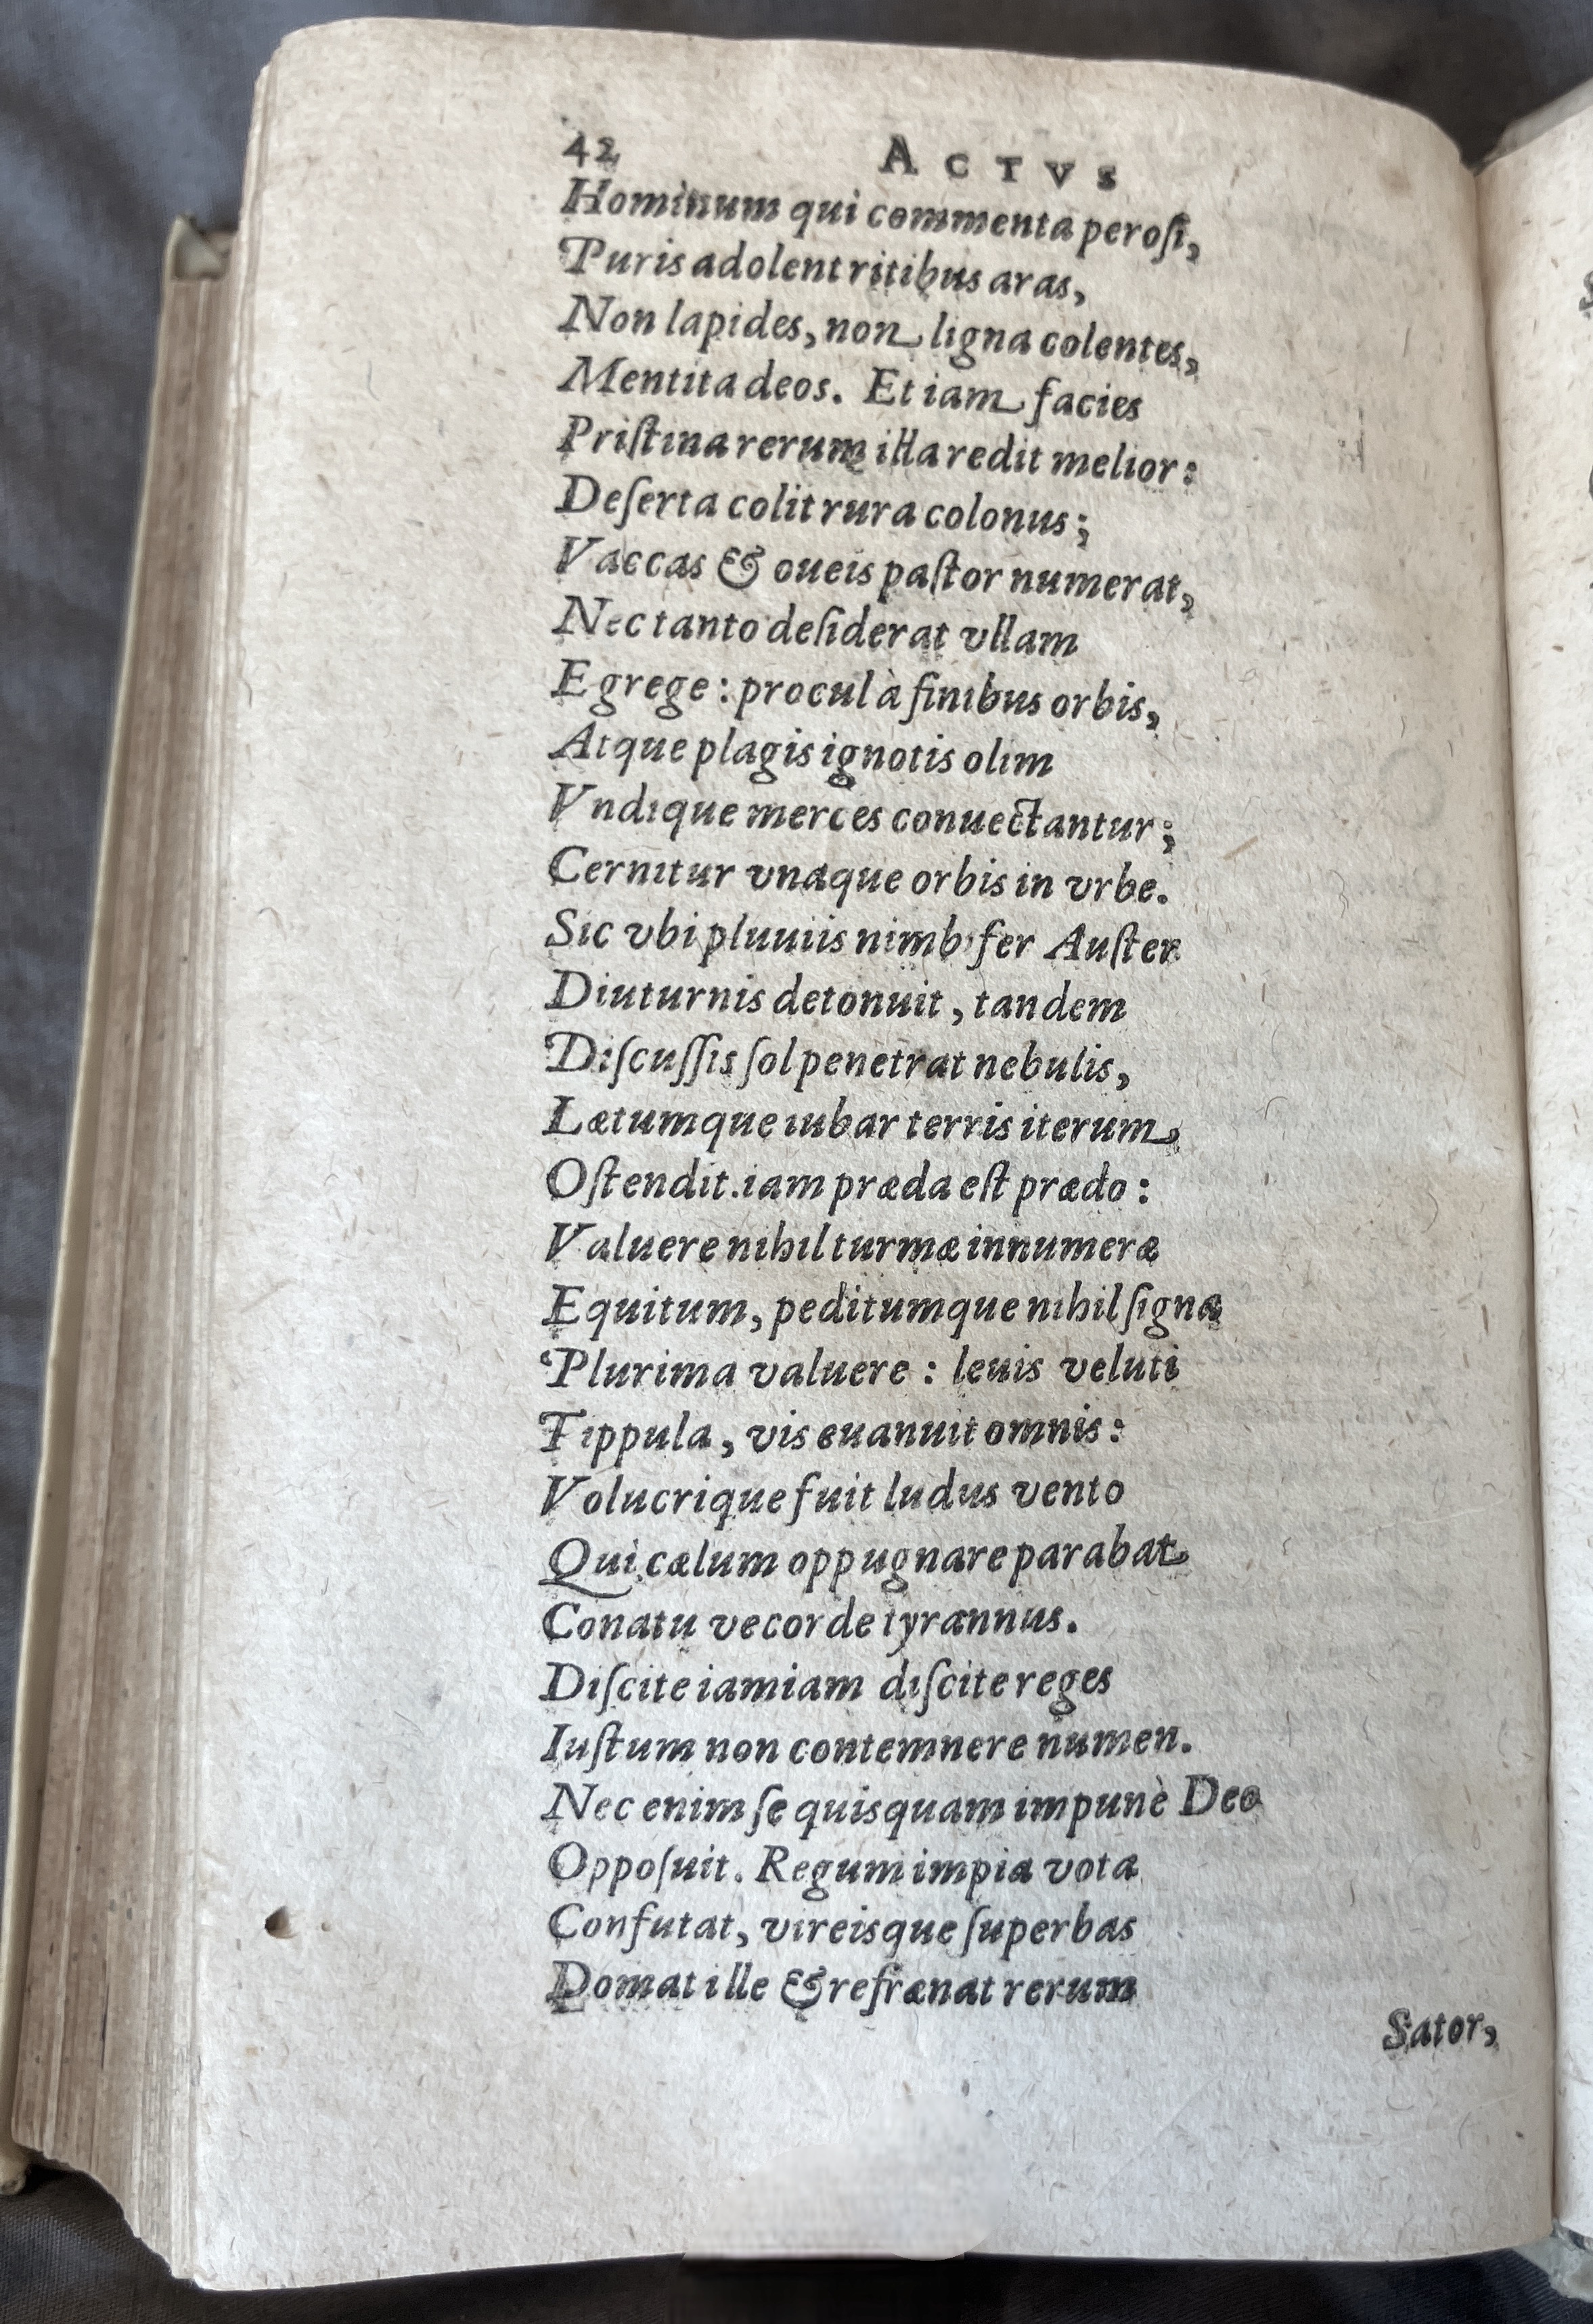 42 ACTVS
Hominum qui commenta perosi,
Puris adolent ritibus aras,
Non lapides, non ligna colentes,
Mentita deos. Et iam facies
Pristina rerum illa redit melior:
Deserta colit rura colonus;
Vaccas & oueis pastor numerat,
Nec tanto desiderat vllam
E grege: procul à finibus orbis,
Atque plagis ignotis olim
Vndique merces conuectantur;
Cernitur vnaque orbis in vrbe.
Sic vbi pluuiis nimbifer Auster
Diuturnis detonuit, tandem
Discussis sol penetrat nebulis,
Lætumque iubar terris iterum,
Ostendit. iam præda est prædo:
Valuere nihil turmæ innumeræ
Equitum, peditumque nihil signa
Plurima valuere: leuis veluti
Tippula, vis euanuit omnis:
Volucrique fuit ludus vento
Qui cælum oppugnare parabat
Conatu vecorde tyrannus.
Discite iamiam discite reges
Iustum non contemnere numen.
Nec enim se quisquam impunè Deo
Opposuit. Regum impia vota
Confutat, vireisque superbas
Domat ille & refrænat rerum
Sator,